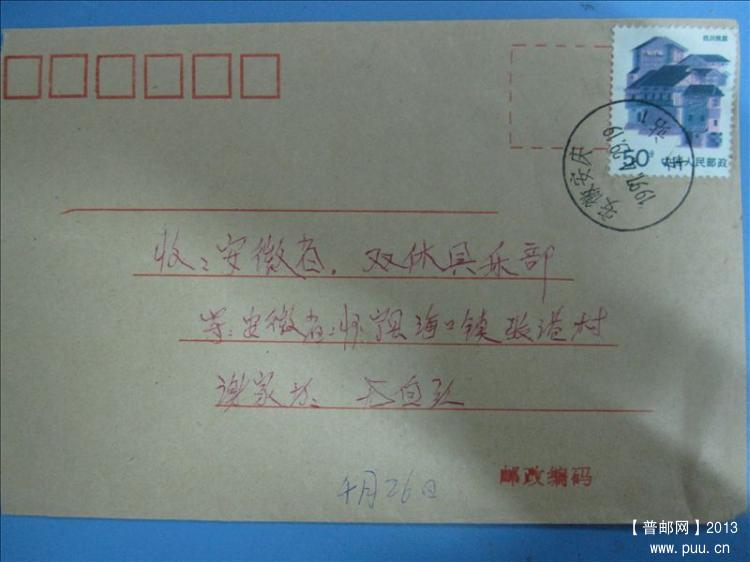 四川民居
50分 中国人民邮政
安徽安庆
收：安徽省，双休俱乐部
寄：安徽省：怀宁县海口镇张港村
谢家
4月26日
邮政编码
【普邮网】2013
www.puu.cn